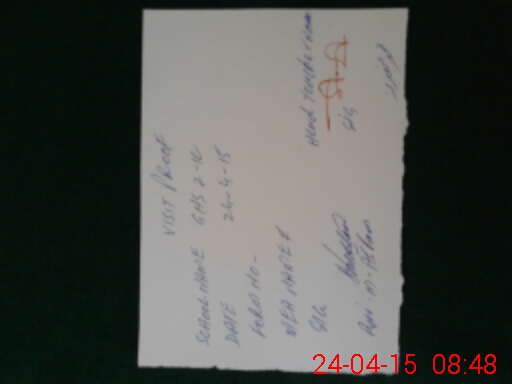 VISIT PROOF
SCHOOL NAME GMS 2-1L
DATE 24-4-15
FORM NO-
MEA NAME &
SIG
Head Teacher Name
Sig
24-04-15 08:48